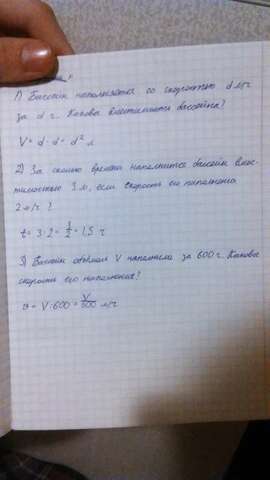 1) Бассейн наполняется со скоростью d л/ч
за d ч. Какова вместимость бассейна?
V = d · d = d² л
2) За сколько времени наполнится бассейн вмес-
тимостью 3 л, если скорость его наполнения
2 л/ч ?
t = 3:2 = 3/2 = 1,5 ч
3) Бассейн объёмом V наполнили за 600 ч. Какова
скорость его наполнения?
v = V:600 = V/600 л/ч